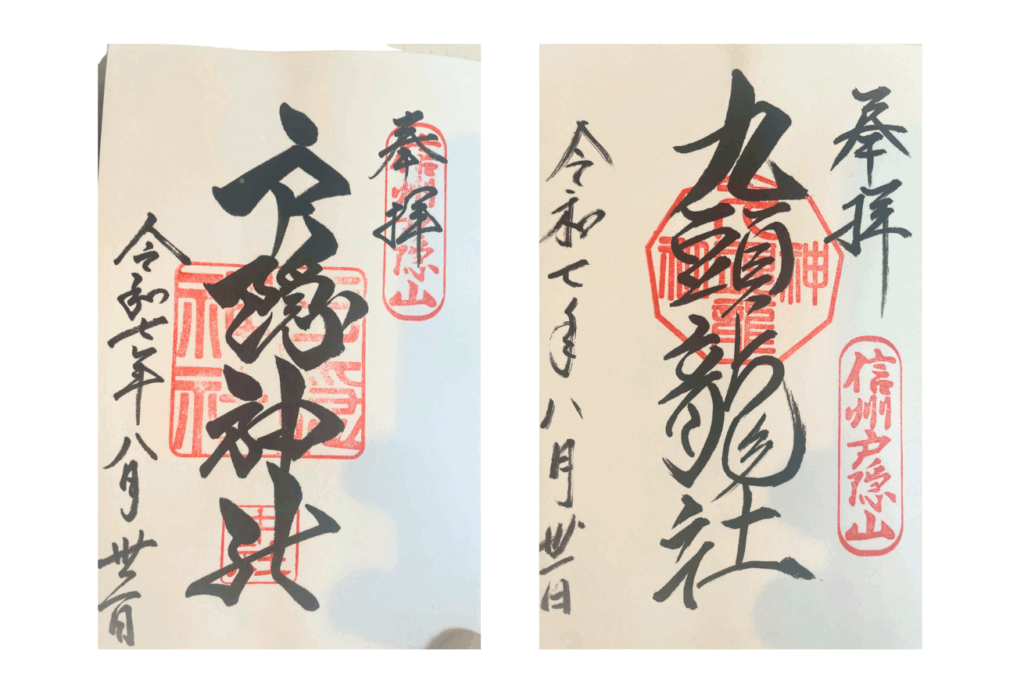 奉拝
信州戸隠山
戸隠神社
戸隠神社
令和七年八月卅一日
奉拝
信州戸隠山
九頭龍社
令和七年八月卅一日